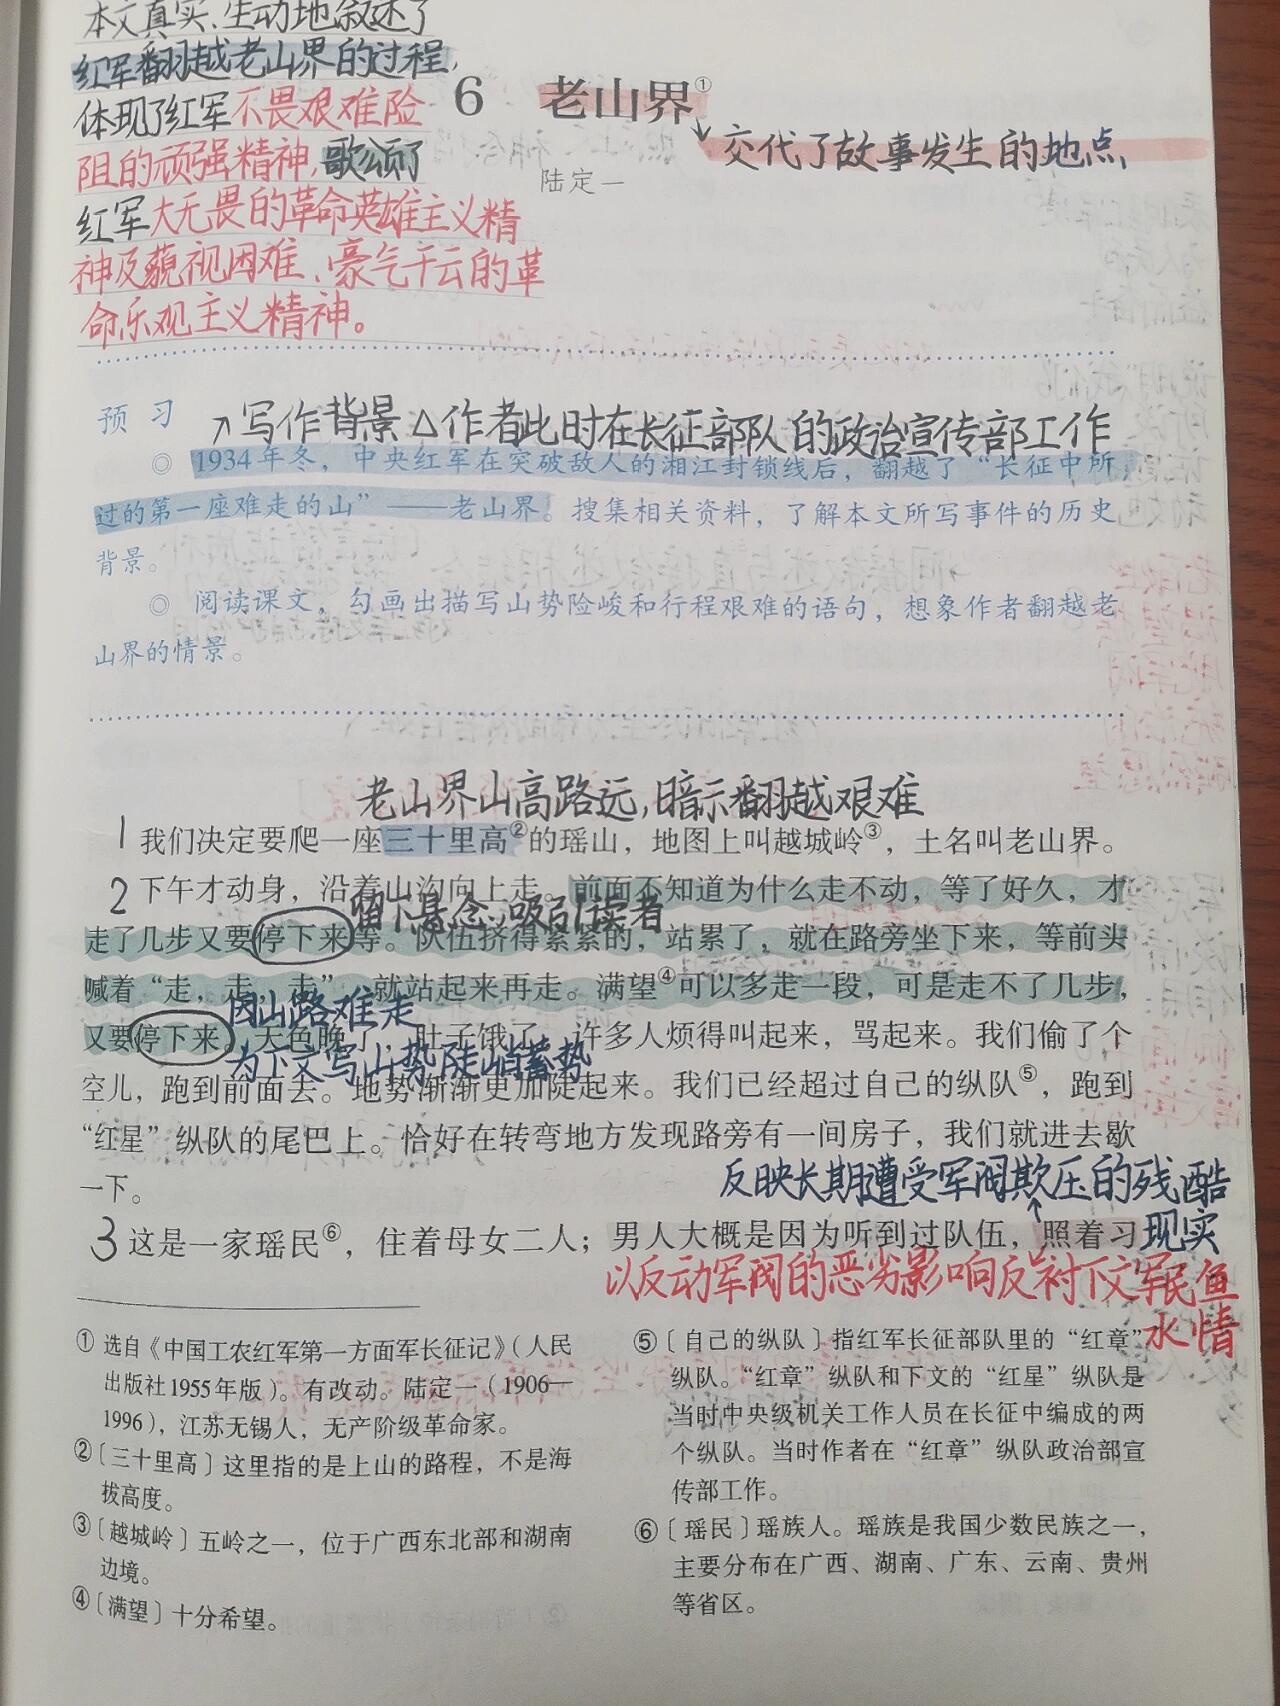 本文真实、生动地叙述了
红军翻越老山界的过程，
体现了红军不畏艰难险
阻的顽强精神，歌颂了
红军大无畏的革命英雄主义精
神及藐视困难、豪气干云的革
命乐观主义精神。
6 老山界①
交代了故事发生的地点
陆定一
预 习
↗写作背景 △作者此时在长征部队的政治宣传部工作
◎ 1934年冬，中央红军在突破敌人的湘江封锁线后，翻越了“长征中所
过的第一座难走的山”——老山界。搜集相关资料，了解本文所写事件的历史
背景。
◎ 阅读课文，勾画出描写山势险峻和行程艰难的语句，想象作者翻越老
山界的情景。
老山界山高路远，暗示翻越艰难
1 我们决定要爬一座三十里高②的瑶山，地图上叫越城岭③，土名叫老山界。
2 下午才动身，沿着山沟向上走。前面不知道为什么走不动，等了好久，才
留下悬念，吸引读者
走了几步又要停下来等。队伍挤得紧紧的，站累了，就在路旁坐下来，等前头
喊着“走，走，走”，就站起来再走。满望④可以多走一段，可是走不了几步，
因山路难走
又要停下来。天色晚了，肚子饿了，许多人烦得叫起来，骂起来。我们偷了个
为下文写山势陡峭蓄势
空儿，跑到前面去。地势渐渐更加陡起来。我们已经超过自己的纵队⑤，跑到
“红星”纵队的尾巴上。恰好在转弯地方发现路旁有一间房子，我们就进去歇
一下。
反映长期遭受军阀欺压的残酷
现实
3 这是一家瑶民⑥，住着母女二人；男人大概是因为听到过队伍，照着习
以反动军阀的恶劣影响反衬下文军民鱼
水情
① 选自《中国工农红军第一方面军长征记》（人民
出版社1955年版）。有改动。陆定一（1906—
1996），江苏无锡人，无产阶级革命家。
②〔三十里高〕这里指的是上山的路程，不是海
拔高度。
③〔越城岭〕五岭之一，位于广西东北部和湖南
边境。
④〔满望〕十分希望。
⑤〔自己的纵队〕指红军长征部队里的“红章”
纵队。“红章”纵队和下文的“红星”纵队是
当时中央级机关工作人员在长征中编成的两
个纵队。当时作者在“红章”纵队政治部宣
传部工作。
⑥〔瑶民〕瑶族人。瑶族是我国少数民族之一，
主要分布在广西、湖南、广东、云南、贵州
等省区。